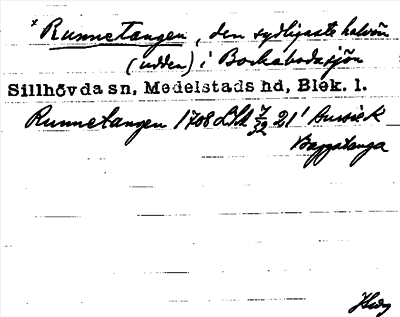 * Runnetangen, den sydligaste halvön
(udden) i Bockabodasjön
Sillhövda sn, Medelstads hd, Blek. l.
Runnetangen 1708 LSA 7/32 21' Aursiek
Baggatanga